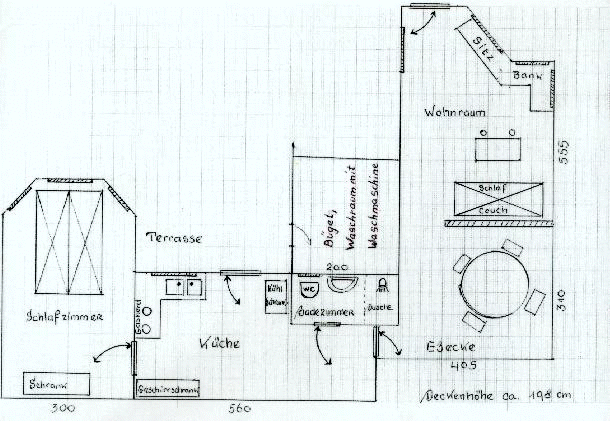 Sitz
Bank
Wohnraum
555
Schlaf
couch
Bügel,
Waschraum mit
Waschmaschine
200
Terrasse
Kühl
WC
Badezimmer
Dusche
310
Schlafzimmer
Gasherd
Küche
Eßecke
405
Schrank
Geschirrschrank
300
560
Deckenhöhe ca. 198 cm